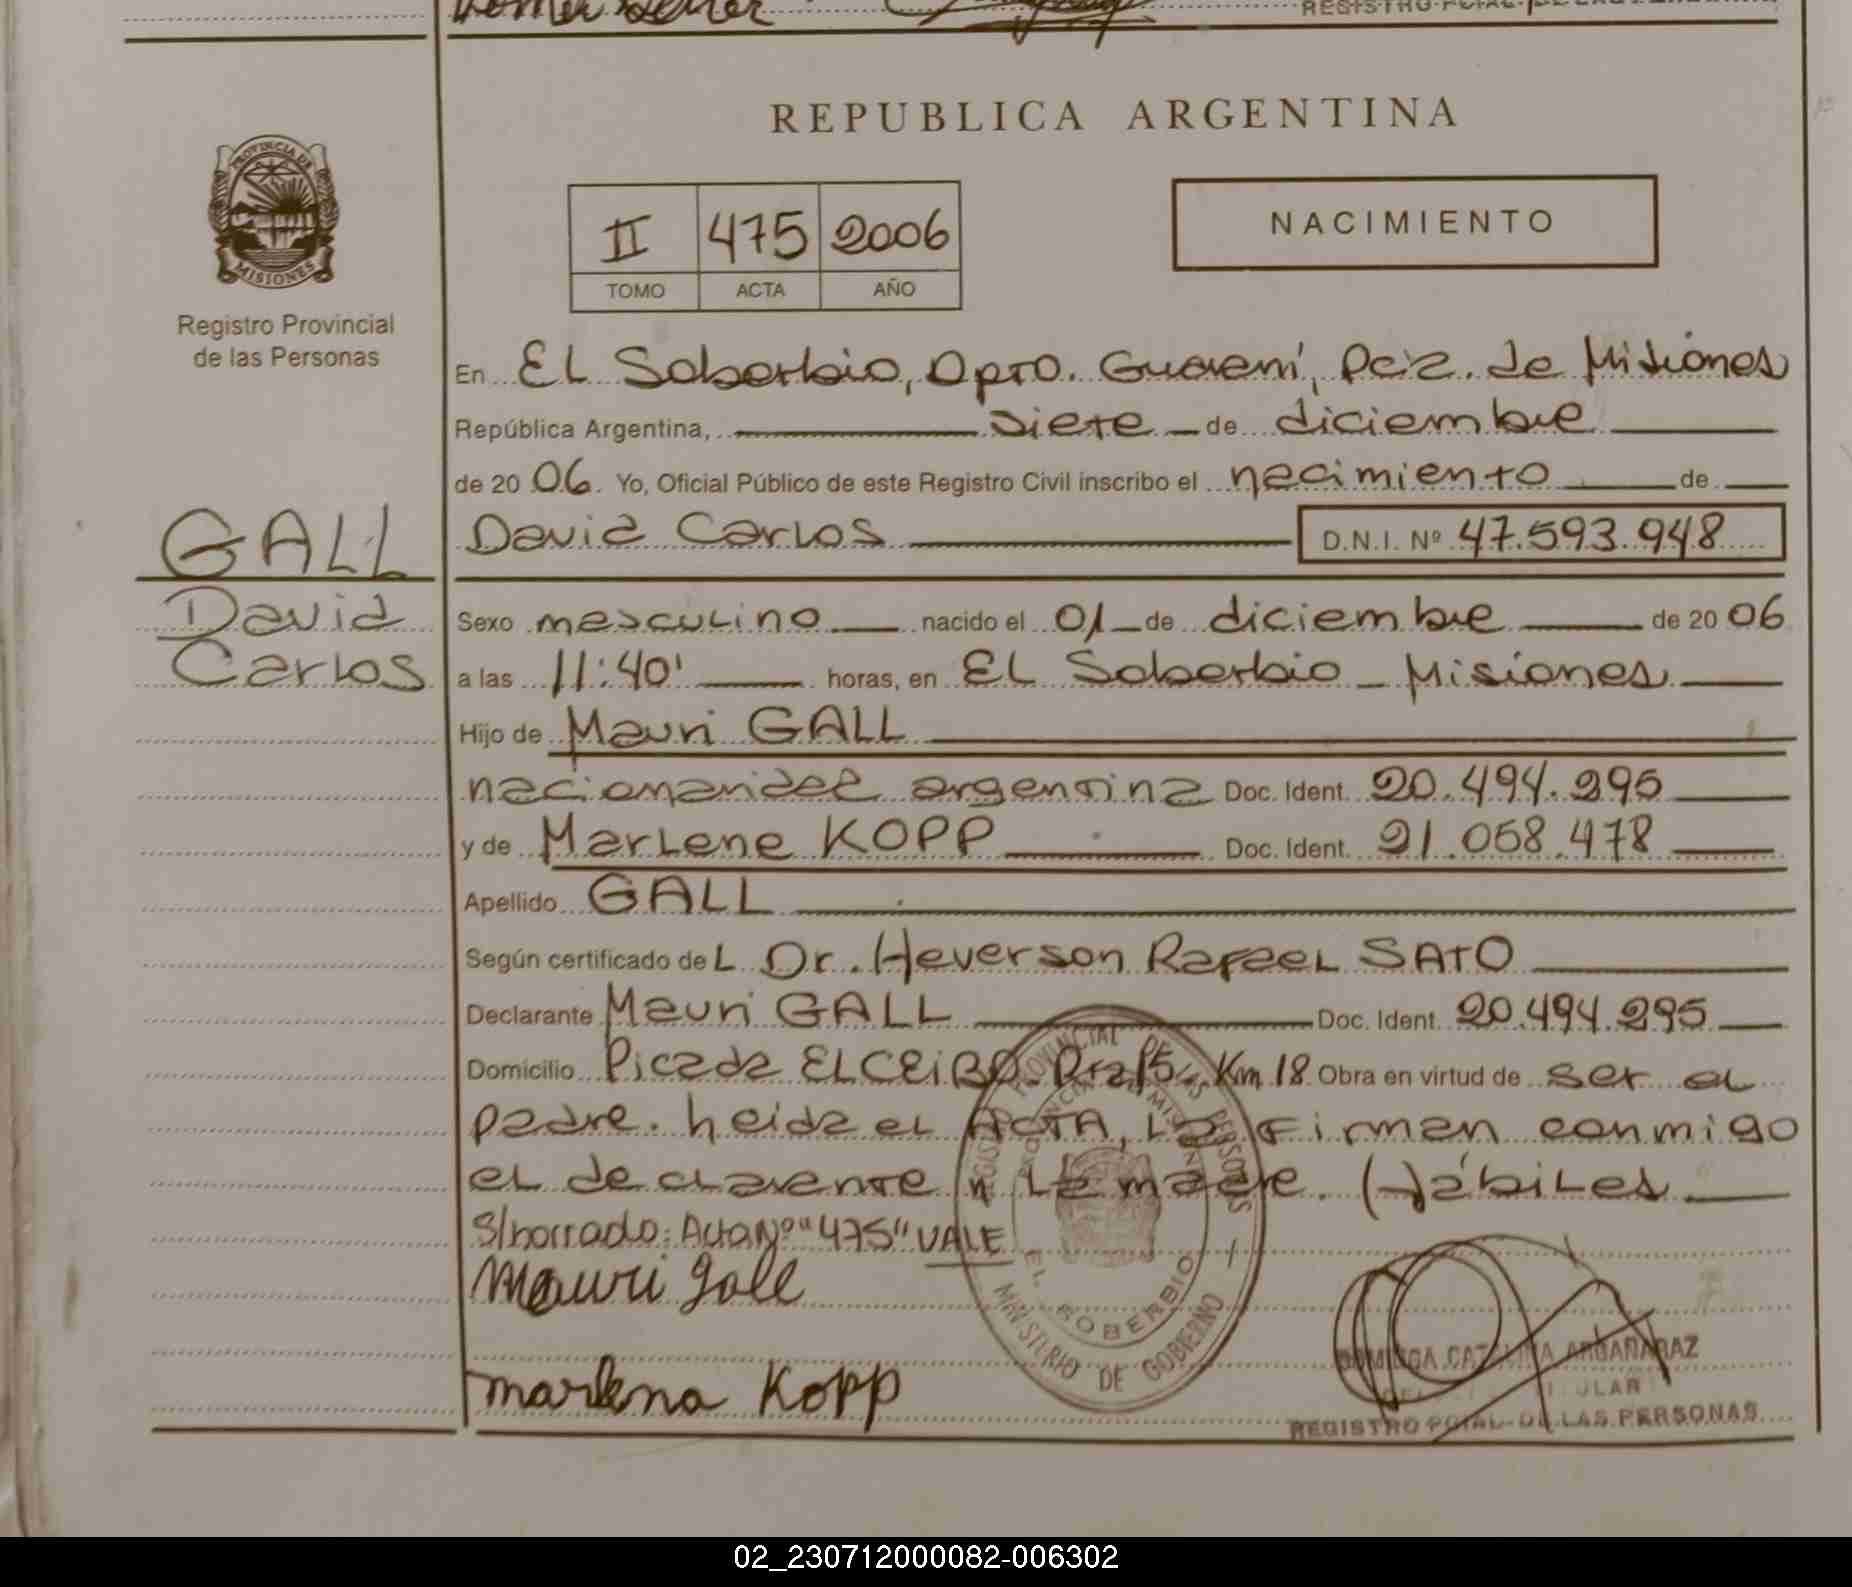 REPUBLICA ARGENTINA
PROVINCIA DE
MISIONES
Registro Provincial
de las Personas
II 475 2006
TOMO ACTA AÑO
NACIMIENTO
En EL Soberbio, Dpto. Guaraní, Pcia. de Misiones
República Argentina, siete de diciembre
de 20 06. Yo, Oficial Público de este Registro Civil inscribo el nacimiento de
GALL
David
Carlos
David Carlos D.N.I. Nº 47.593.948
Sexo masculino nacido el 01 de diciembre de 20 06
a las 11:40' horas, en EL Soberbio - Misiones
Hijo de Mauri GALL
argentina Doc. Ident. 20.494.295
y de Marlene KOPP Doc. Ident. 21.058.478
Apellido GALL
Según certificado de L Dr. Heverson Rafael SATO
Declarante Mauri GALL Doc. Ident. 20.494.295
Domicilio Picada EL CEIBO. Km 18 Obra en virtud de ser el
padre. Leida el ACTA, La firman conmigo
el declarante y La madre. Hábiles
S/borrado: Acta Nº "475" VALE
Mauri Gall
marlena Kopp
REGISTRO PROVINCIAL DE LAS PERSONAS
MINISTERIO DE GOBIERNO
PROVINCIA DE MISIONES
EL SOBERBIO
ARGAÑARAZ
REGISTRO PCIAL. DE LAS PERSONAS
02_230712000082-006302